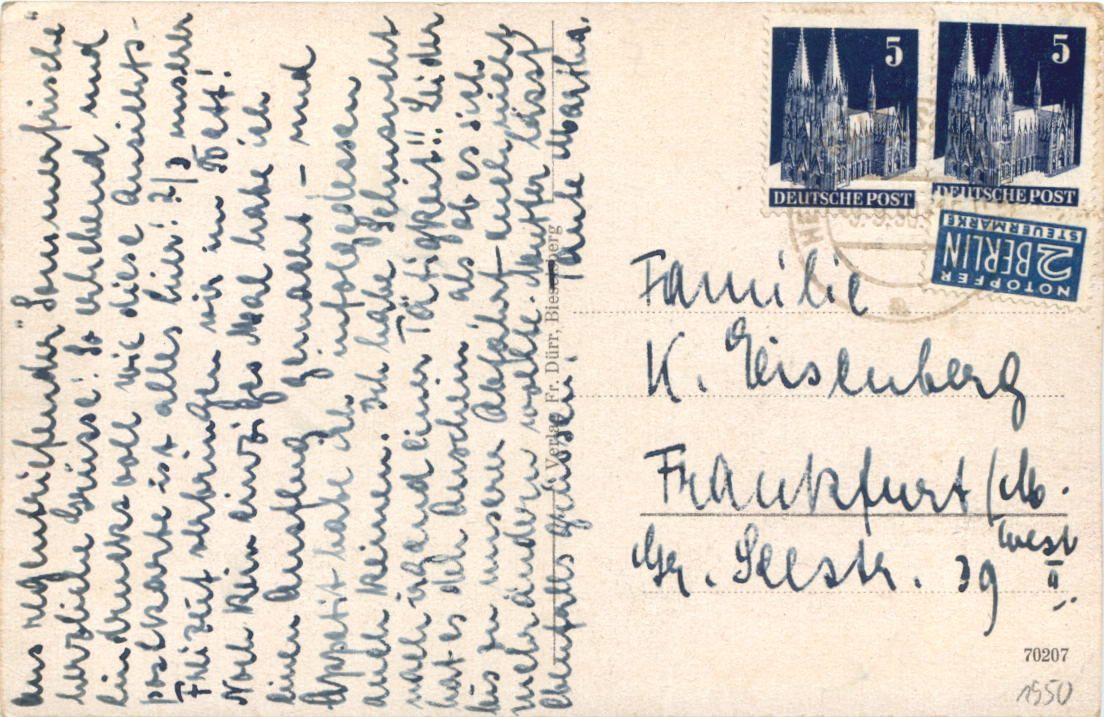 aus regentriefender "Sommerfrische"
herzliche Grüsse! So erhebend und
eindrucksvoll wie diese Ansichts-
postkarte ist alles hier! 2/3 unserer
Freizeit verbringen wir im Bett!
Noch kein einziges Mal habe ich
einen Ausflug gemacht – und
Appetit habe ich infolgedessen
auch keinen. Ich habe Sehnsucht
nach irgendeiner Tätigkeit!! Leider
hat es den Anschein als ob es sich
bis zu unserer Abfahrt nicht
mehr ändern wollte. Mutter lässt
ebenfalls grüssen! Tante Martha.
Verlag Fr. Dürr, Bieselsberg
5
DEUTSCHE POST
5
DEUTSCHE POST
NOTOPFER
2 BERLIN
STEUERMARKE
Familie
K. Eisenberg
Frankfurt/M.
West
Gr. Seestr. 39 II
70207
1950